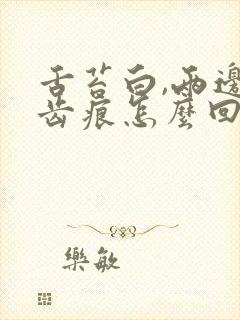 舌苔白,兩邊
齿痕怎麼回
樂敏